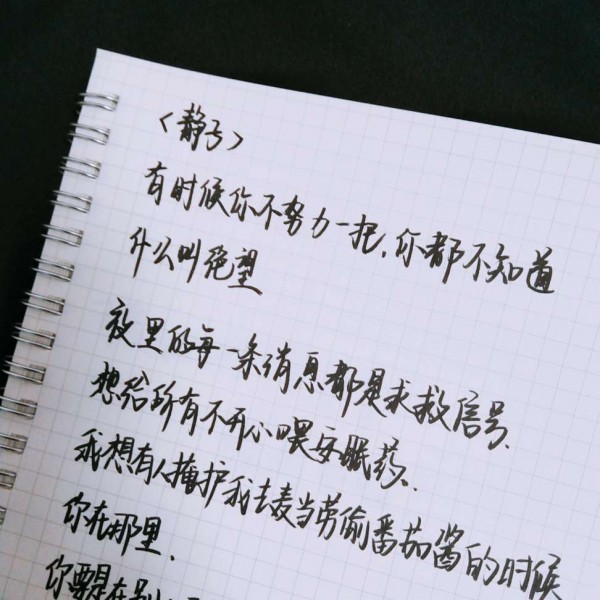 《静号》
有时候你不努力一把,你都不知道
什么叫绝望
夜里的每一条消息都是求救信号.
想给所有不开心喂安眠药.
我想有人掩护我去麦当劳偷番茄酱的时候
你在那里.
你要是在别